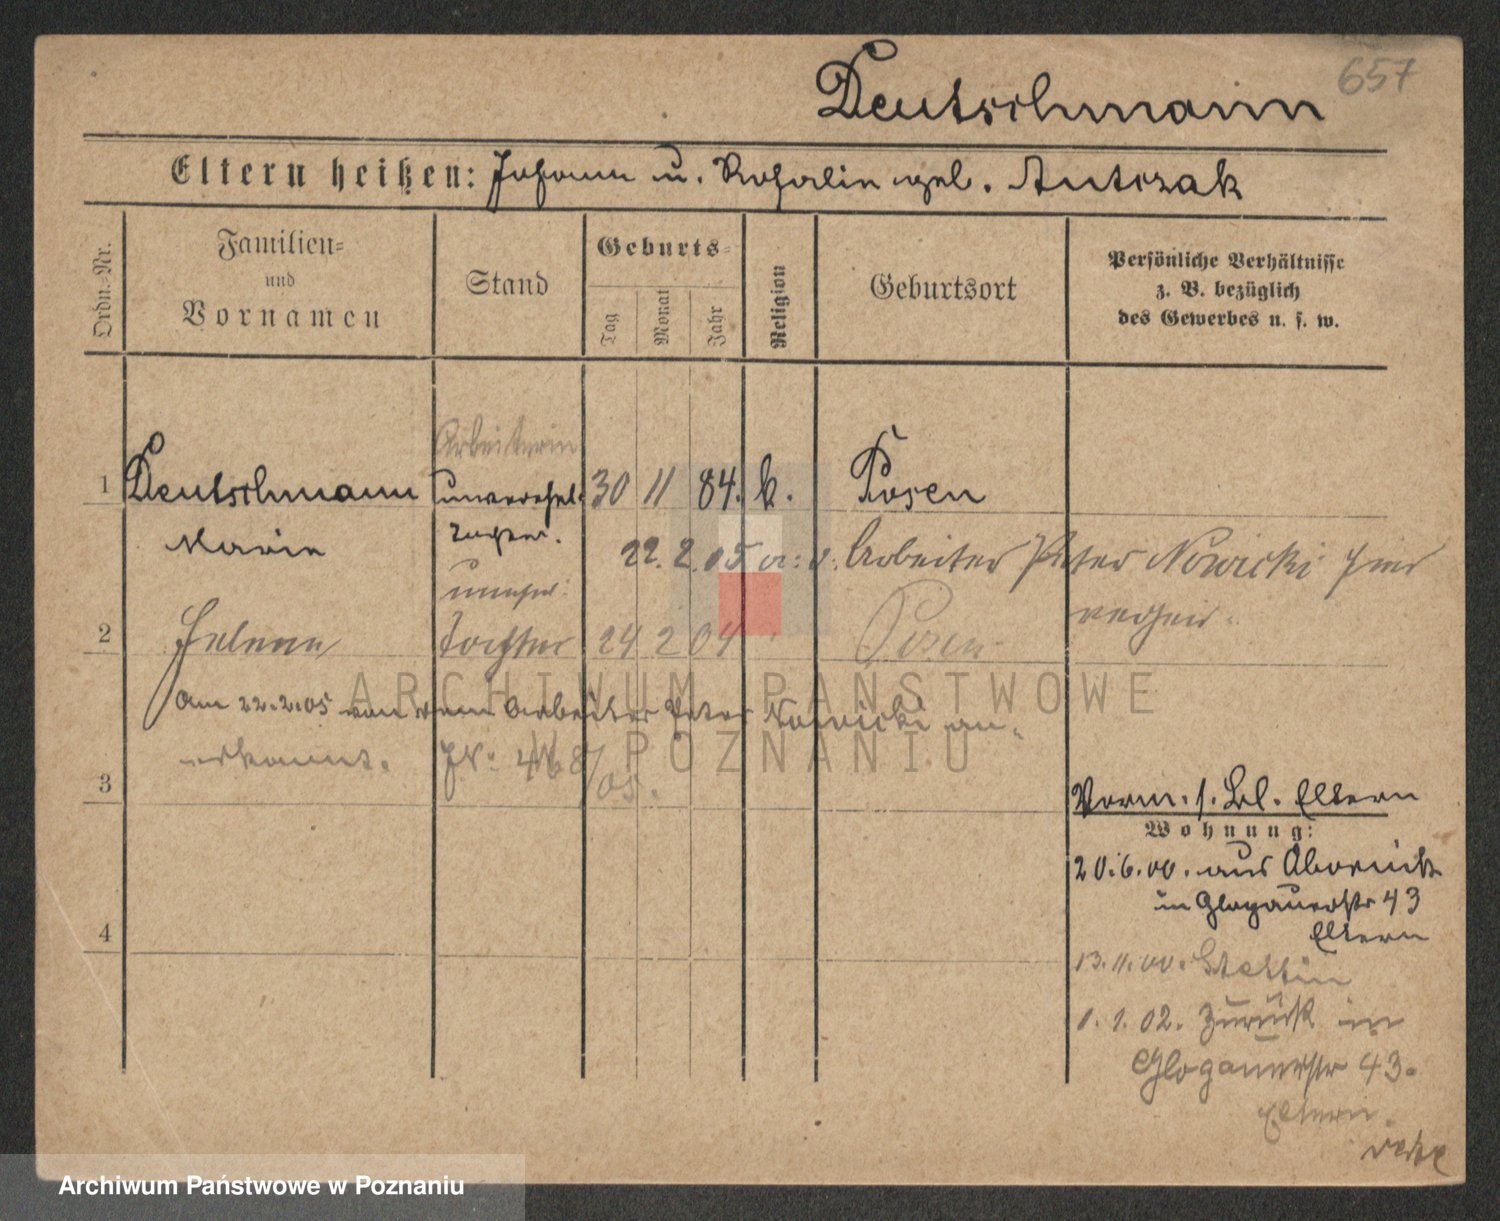 657
Deutschmann
Eltern heißen: Johann u. Rosalie geb. Antczak
Ordn.-Nr.
Familien-
und
Vornamen
Stand
Geburts-
Tag
Monat
Jahr
Religion
Geburtsort
Persönliche Verhältnisse
z. B. bezüglich
des Gewerbes u. s. w.
Arbeiterin
1 Deutschmann unverehel. 30 11 84. k. Posen
Marie Tochter.
22. 2. 05 Arbeiter Peter Nowicki hier
unehel.
2 Helene Tochter 24 2 04 Posen
ARCHIWUM PAŃSTWOWE
W POZNANIU
Am 22.2.05 von dem Arbeiter Peter Nowicki an-
erkannt. 05.
3
4
Vorm. s. Bl. Eltern
Wohnung:
20.6.00. aus Obornik
in Glogauerstr 43
Eltern
13.11.00. Stettin
1. 1. 02. zurück in
Glogauerstr 43.
Eltern.
Archiwum Państwowe w Poznaniu